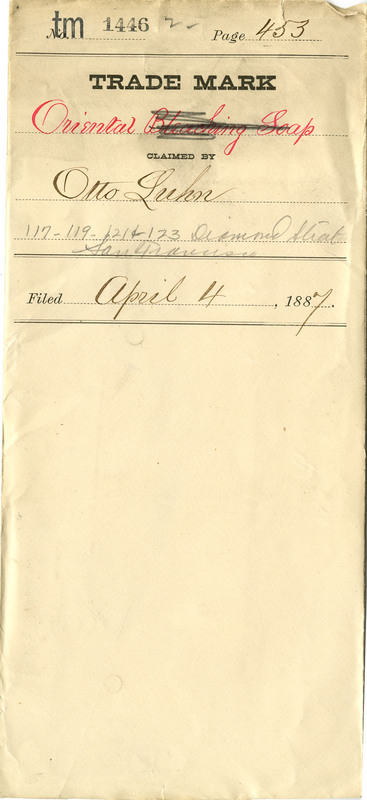 No. tm 1446 2- Page 453
TRADE MARK
Oriental Bleaching Soap
CLAIMED BY
Otto Luhn
117-119-121 & 123 Diamond Street
San Francisco
Filed April 4, 1887.